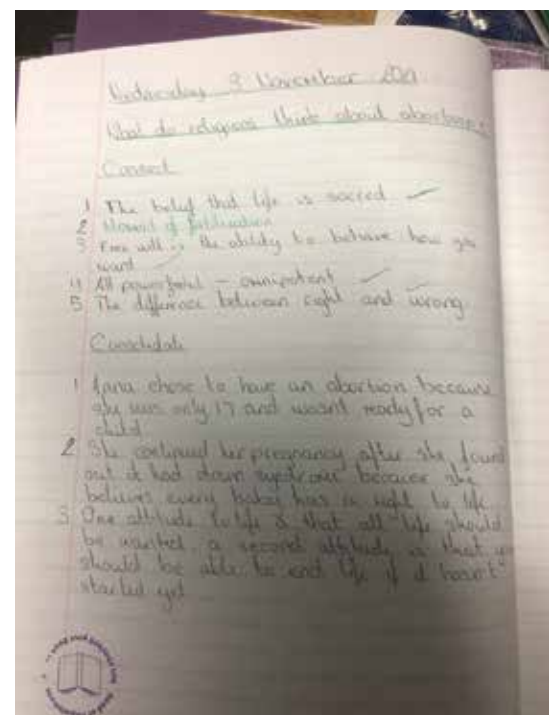 Wednesday 9 November
What do religions think about abortion?
Connect
1 The belief that life is sacred
2 Moment of fertilisation
3 Free will is the ability to behave how you
want
4 All powerful - omnipotent
5 The difference between right and wrong
Consolidate
1 chose to have an abortion because
she was only 17 and wasn't ready for a
child
2 She continued her pregnancy after she found
out it had down syndrome because she
believes every baby has a right to life
3 One attitude to life is that all life should
be wanted, a second attitude is that we
should be able to end life if it hasn't
started yet